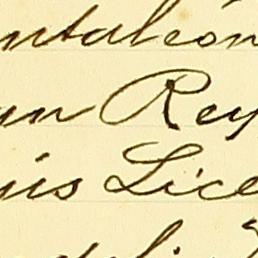 ntaleón
un Rey
uis Lice